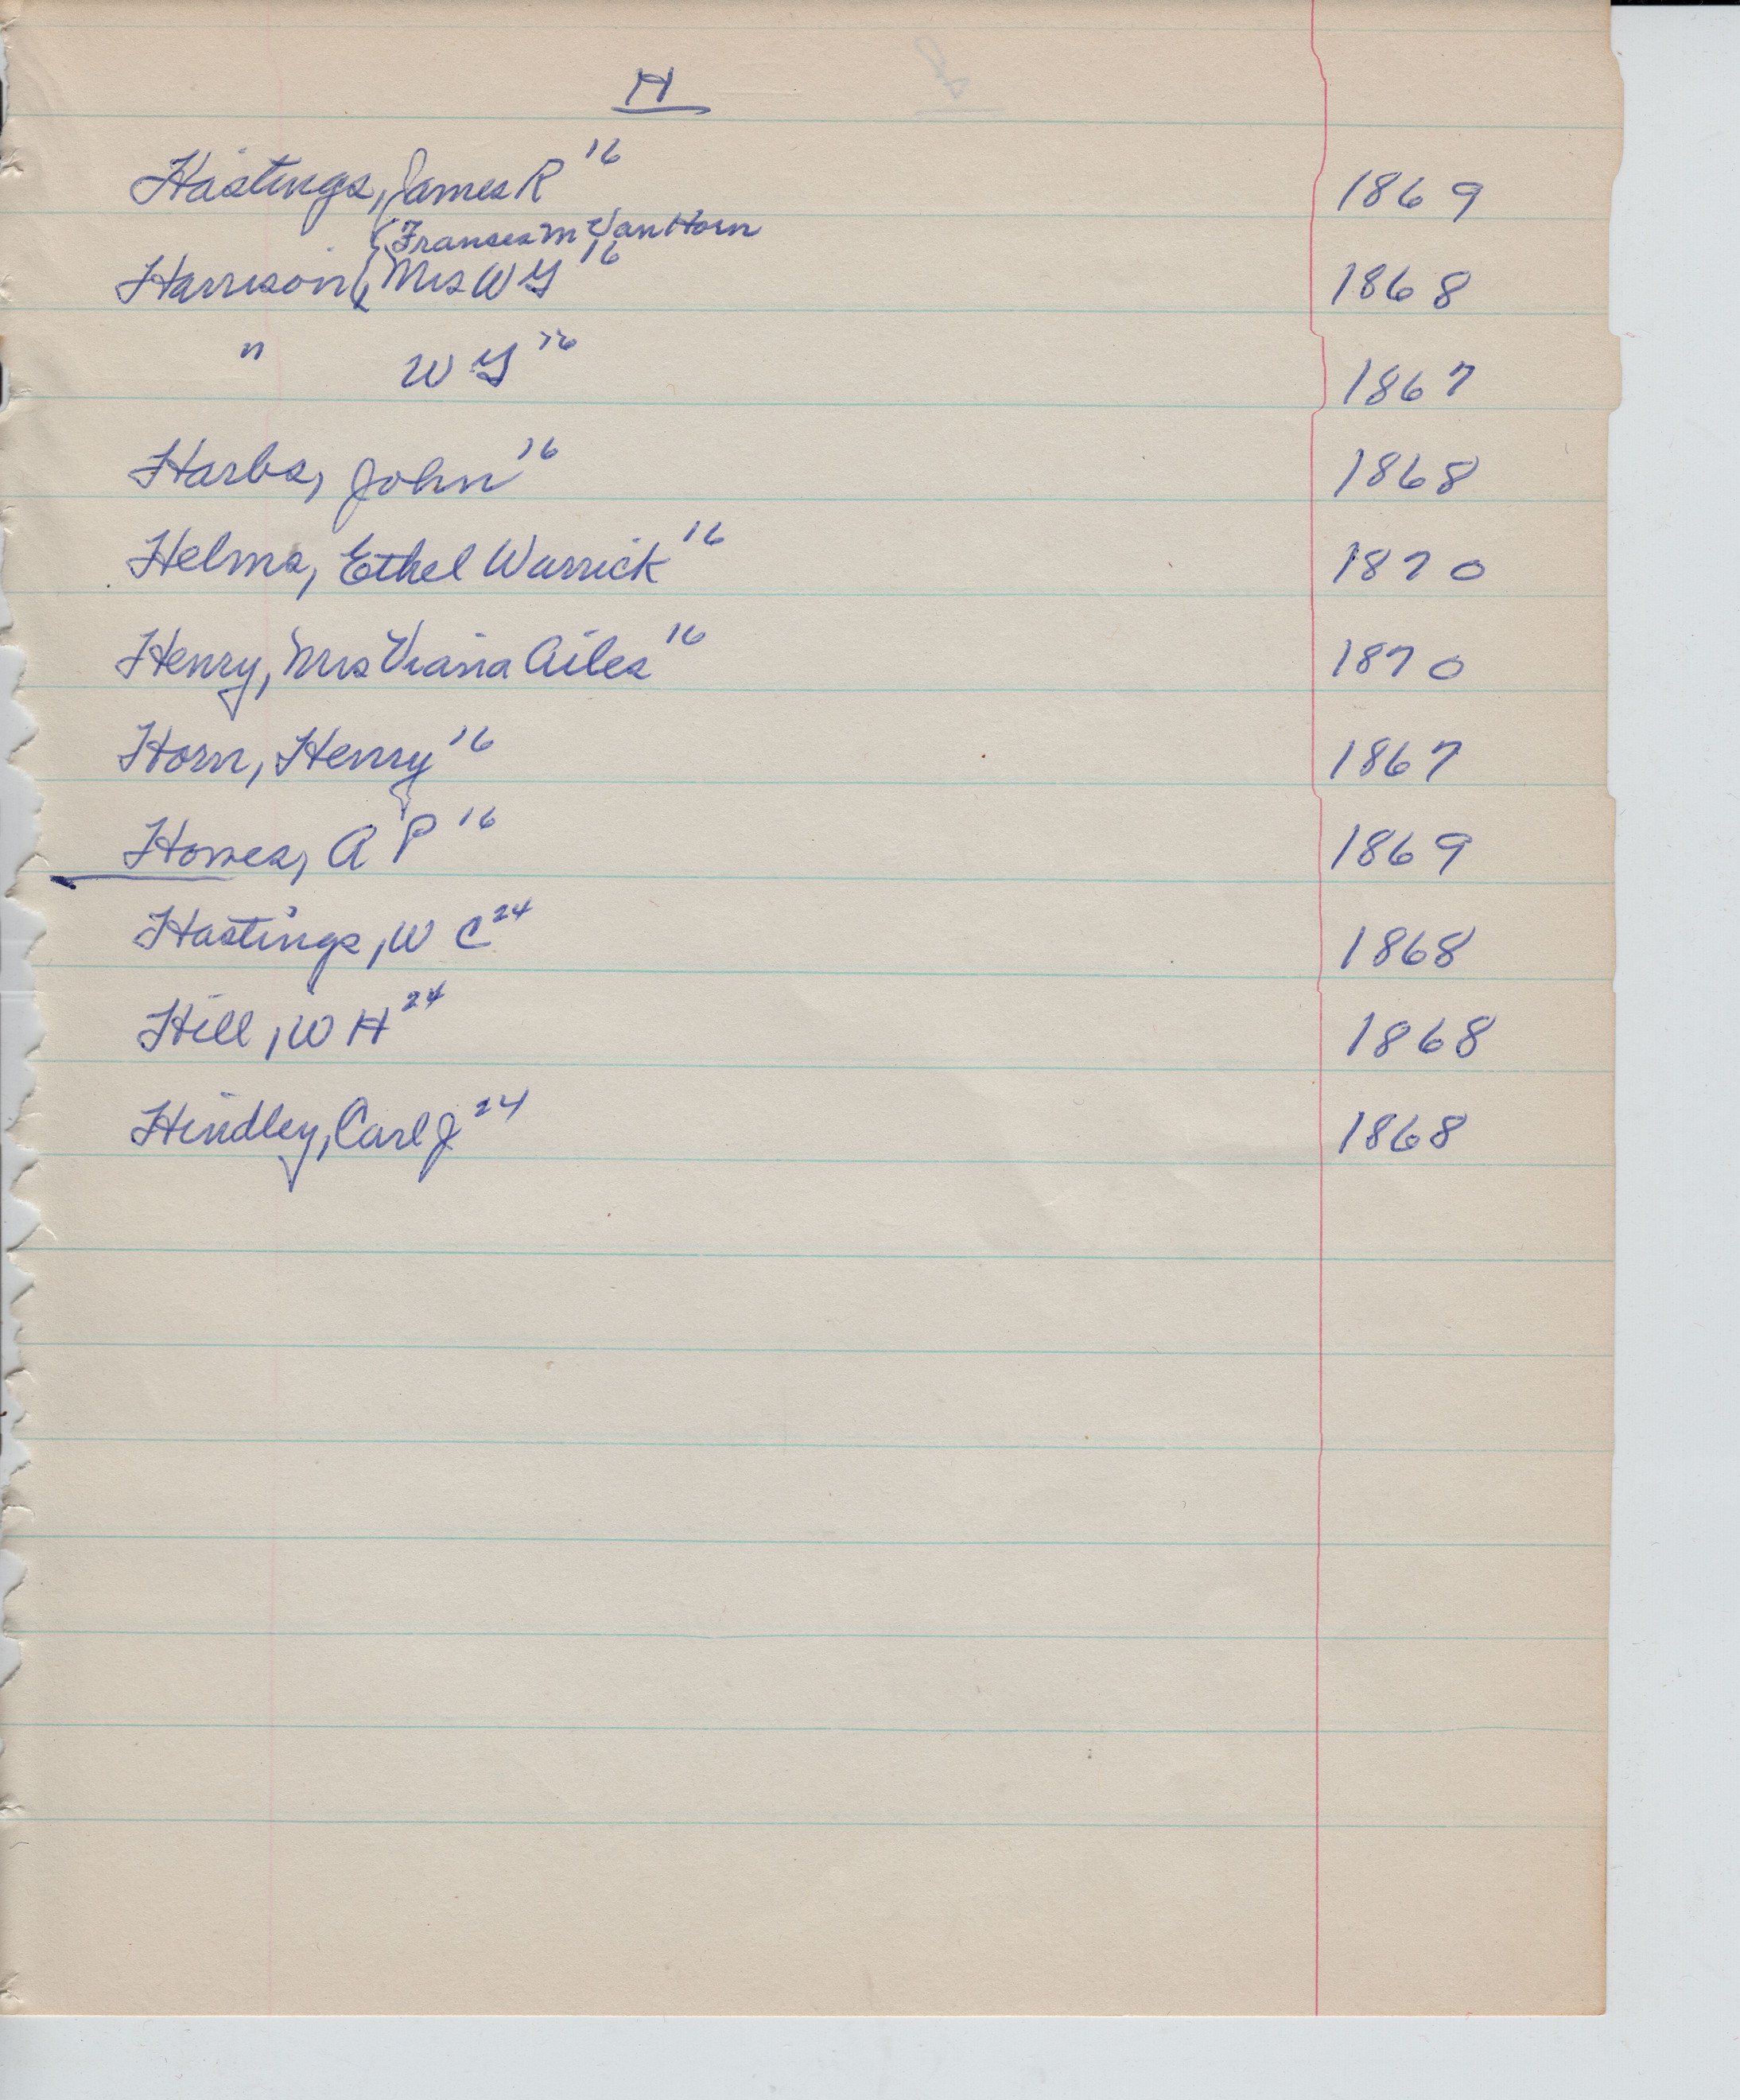 H
Hastings, James R 16 1869
Frances M Van Horn
Harrison, Mrs W G 16 1868
" W G 16 1867
Harbs, John 16 1868
Helms, Ethel Warrick 16 1870
Henry, Mrs Ailes 16 1870
Horn, Henry 16 1867
A P 16 1869
Hastings, W C 24 1868
Hill, W H 24 1868
Hindley, Carl J 24 1868